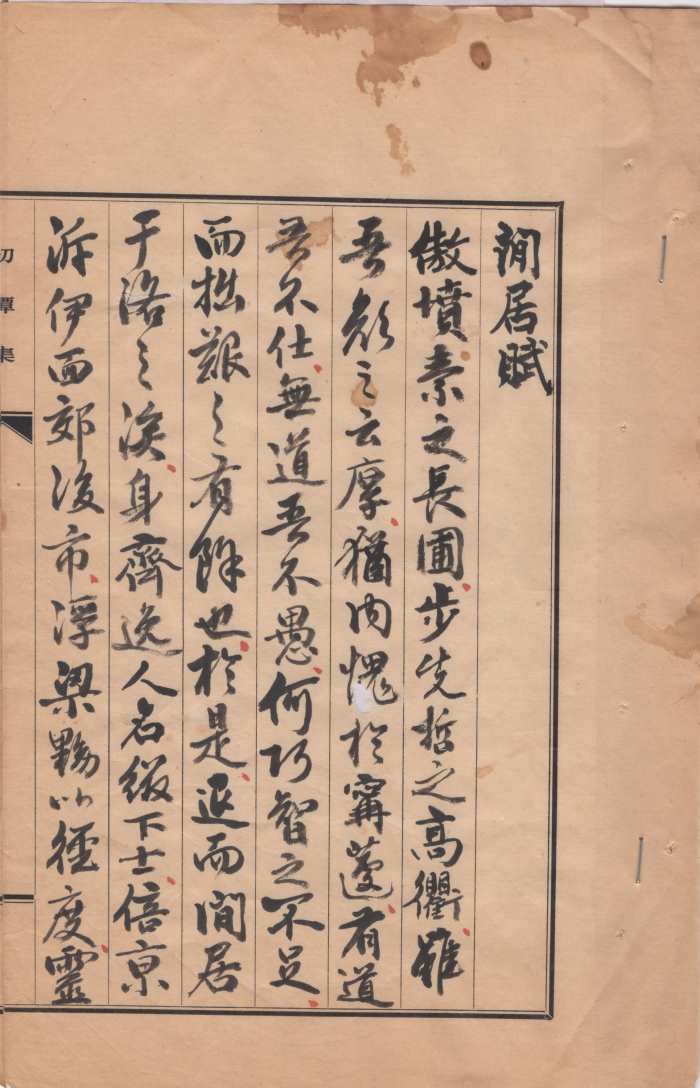 閒居賦
傲墳素之長圃步先哲之高衢雖
吾顏之云厚猶內愧於甯蘧有道
吾不仕無道吾不愚何巧智之不足
而拙艱之有餘也於是退而閒居
于洛之涘身齊逸人名綴下士倍京
泝伊面郊後市浮梁黝以徑度靈
集